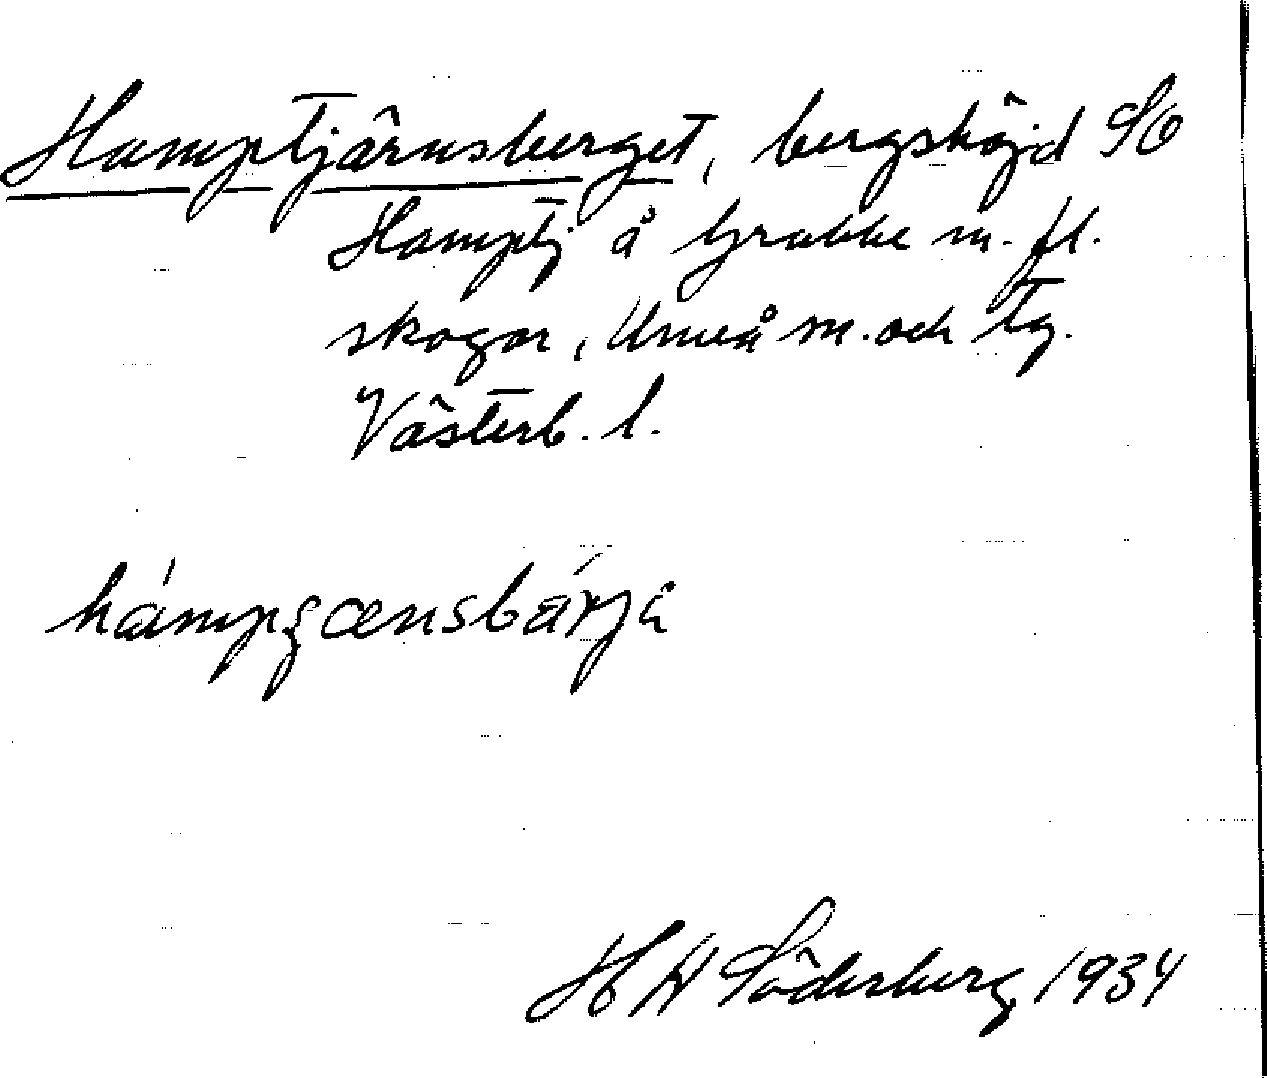 Hamptjärnsberget, bergshöjd SO
Hamptj å Grubbe m. fl.
skogar, Umeå m. och tg.
Västerb. l.
H W Söderberg 1934